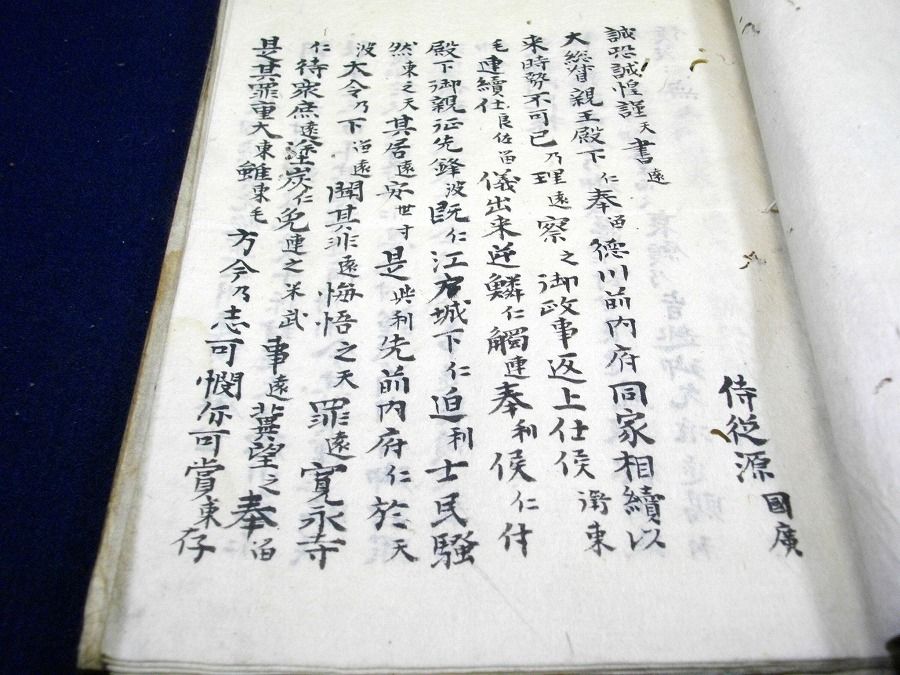 侍従源國廣
誠恐誠惶謹天書遠
大総督親王殿下仁奉留德川前内府同家相續以
来時勢不可已乃理遠察之御政事返上仕候衝東
毛連續仕良佐留儀出来逆鱗仁觸連奉利候仁付
殿下御親征先鋒波既仁江府城下仁迫利士民騒
然東之天其居遠安世寸是與利先前内府仁於天
波大令乃下留遠聞其非遠悔悟之天罪遠寛永寺
仁待衆庶遠塗炭仁免連之米武事遠冀望之奉留
是其罪重大東雖東毛方今乃志可憫亦可賞東存